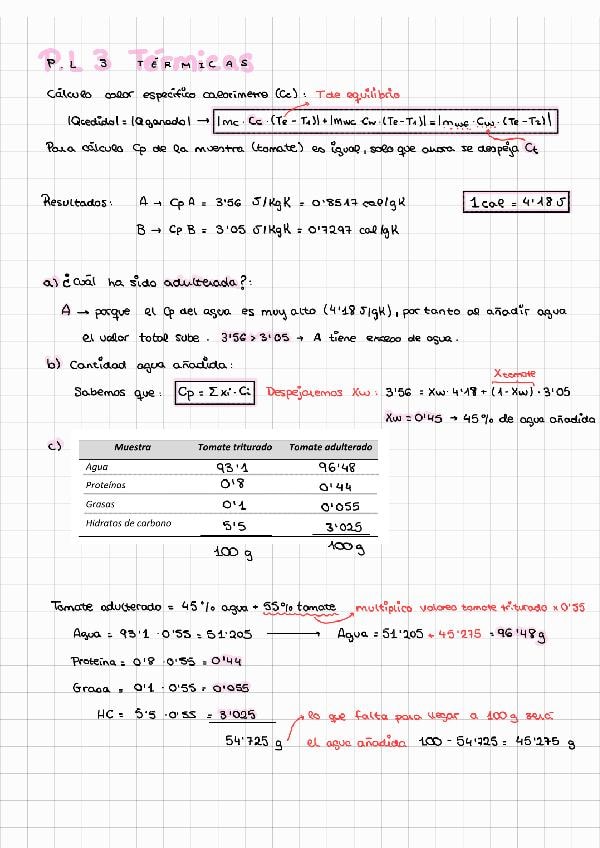 P.L 3 TÉRMICAS
Cálculo calor específico calorímetro (Cc): T de equilibrio
|Qcedido| = |Qganado| → |mc · Cc · (Te - T1)| + |mwc · Cw · (Te - T1)| = |mwf · Cw · (Te - T2)|
Para cálculo Cp de la muestra (tomate) es igual, solo que ahora se despeja Ct
Resultados: A → Cp A = 3'56 J/KgK = 0'8517 cal/gK 1 cal = 4'18 J
B → Cp B = 3'05 J/KgK = 0'7297 cal/gK
a) ¿Cuál ha sido adulterada?:
A → porque el Cp del agua es muy alto (4'18 J/gK), por tanto al añadir agua
el valor total sube. 3'56 > 3'05 → A tiene exceso de agua.
b) Cantidad agua añadida:
Xtomate
Sabemos que: Cp = Σxi · Ci Despejaremos Xw: 3'56 = Xw · 4'18 + (1 - Xw) · 3'05
Xw = 0'45 → 45% de agua añadida
c) Muestra Tomate triturado Tomate adulterado
Agua 93'1 96'48
Proteínas 0'8 0'44
Grasas 0'1 0'055
Hidratos de carbono 5'5 3'025
100 g 100 g
Tomate adulterado = 45% agua + 55% tomate multiplico valores tomate triturado x 0'55
Agua = 93'1 · 0'55 = 51'205 → Agua = 51'205 + 45'275 = 96'48 g
Proteína = 0'8 · 0'55 = 0'44
Grasa = 0'1 · 0'55 = 0'055
HC = 5'5 · 0'55 = 3'025 lo que falta para llegar a 100 g será
54'725 g el agua añadida 100 - 54'725 = 45'275 g